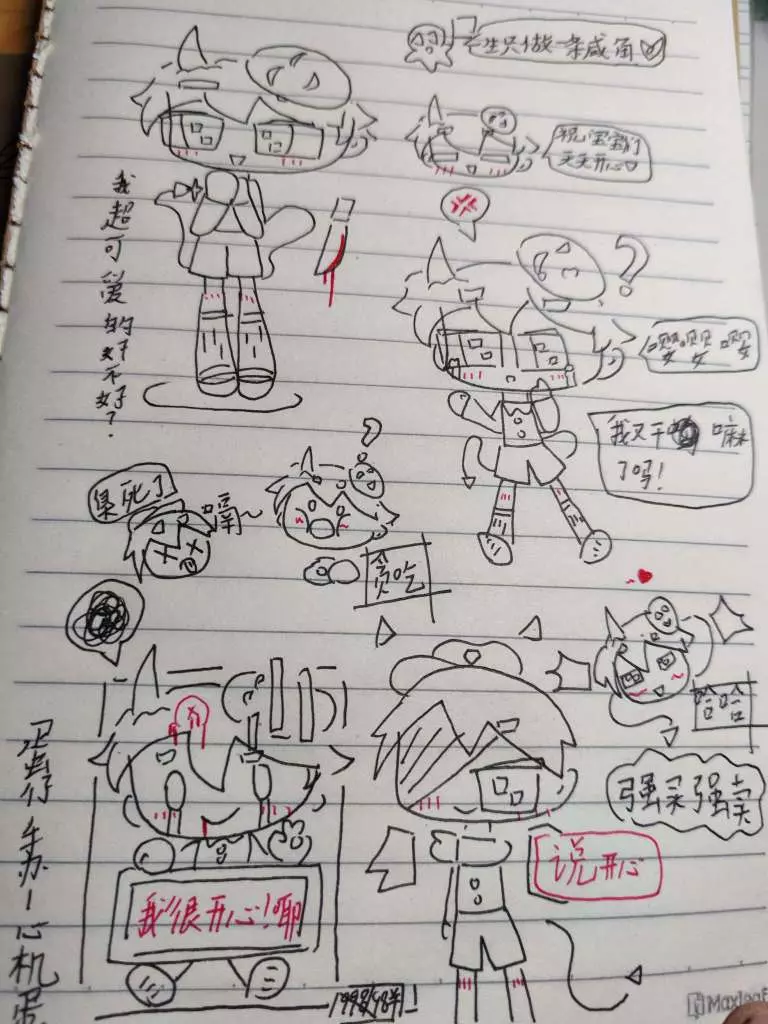 生只做一条咸鱼
祝宝宝们
天天开心
我超可爱的好不好？
?
嘤嘤嘤
我又干嘛
了吗！
累死了
嗝~
?
贪吃
哈哈
强买强卖
说开心
我很开心！耶
心机蛋
1998
Maxleaf